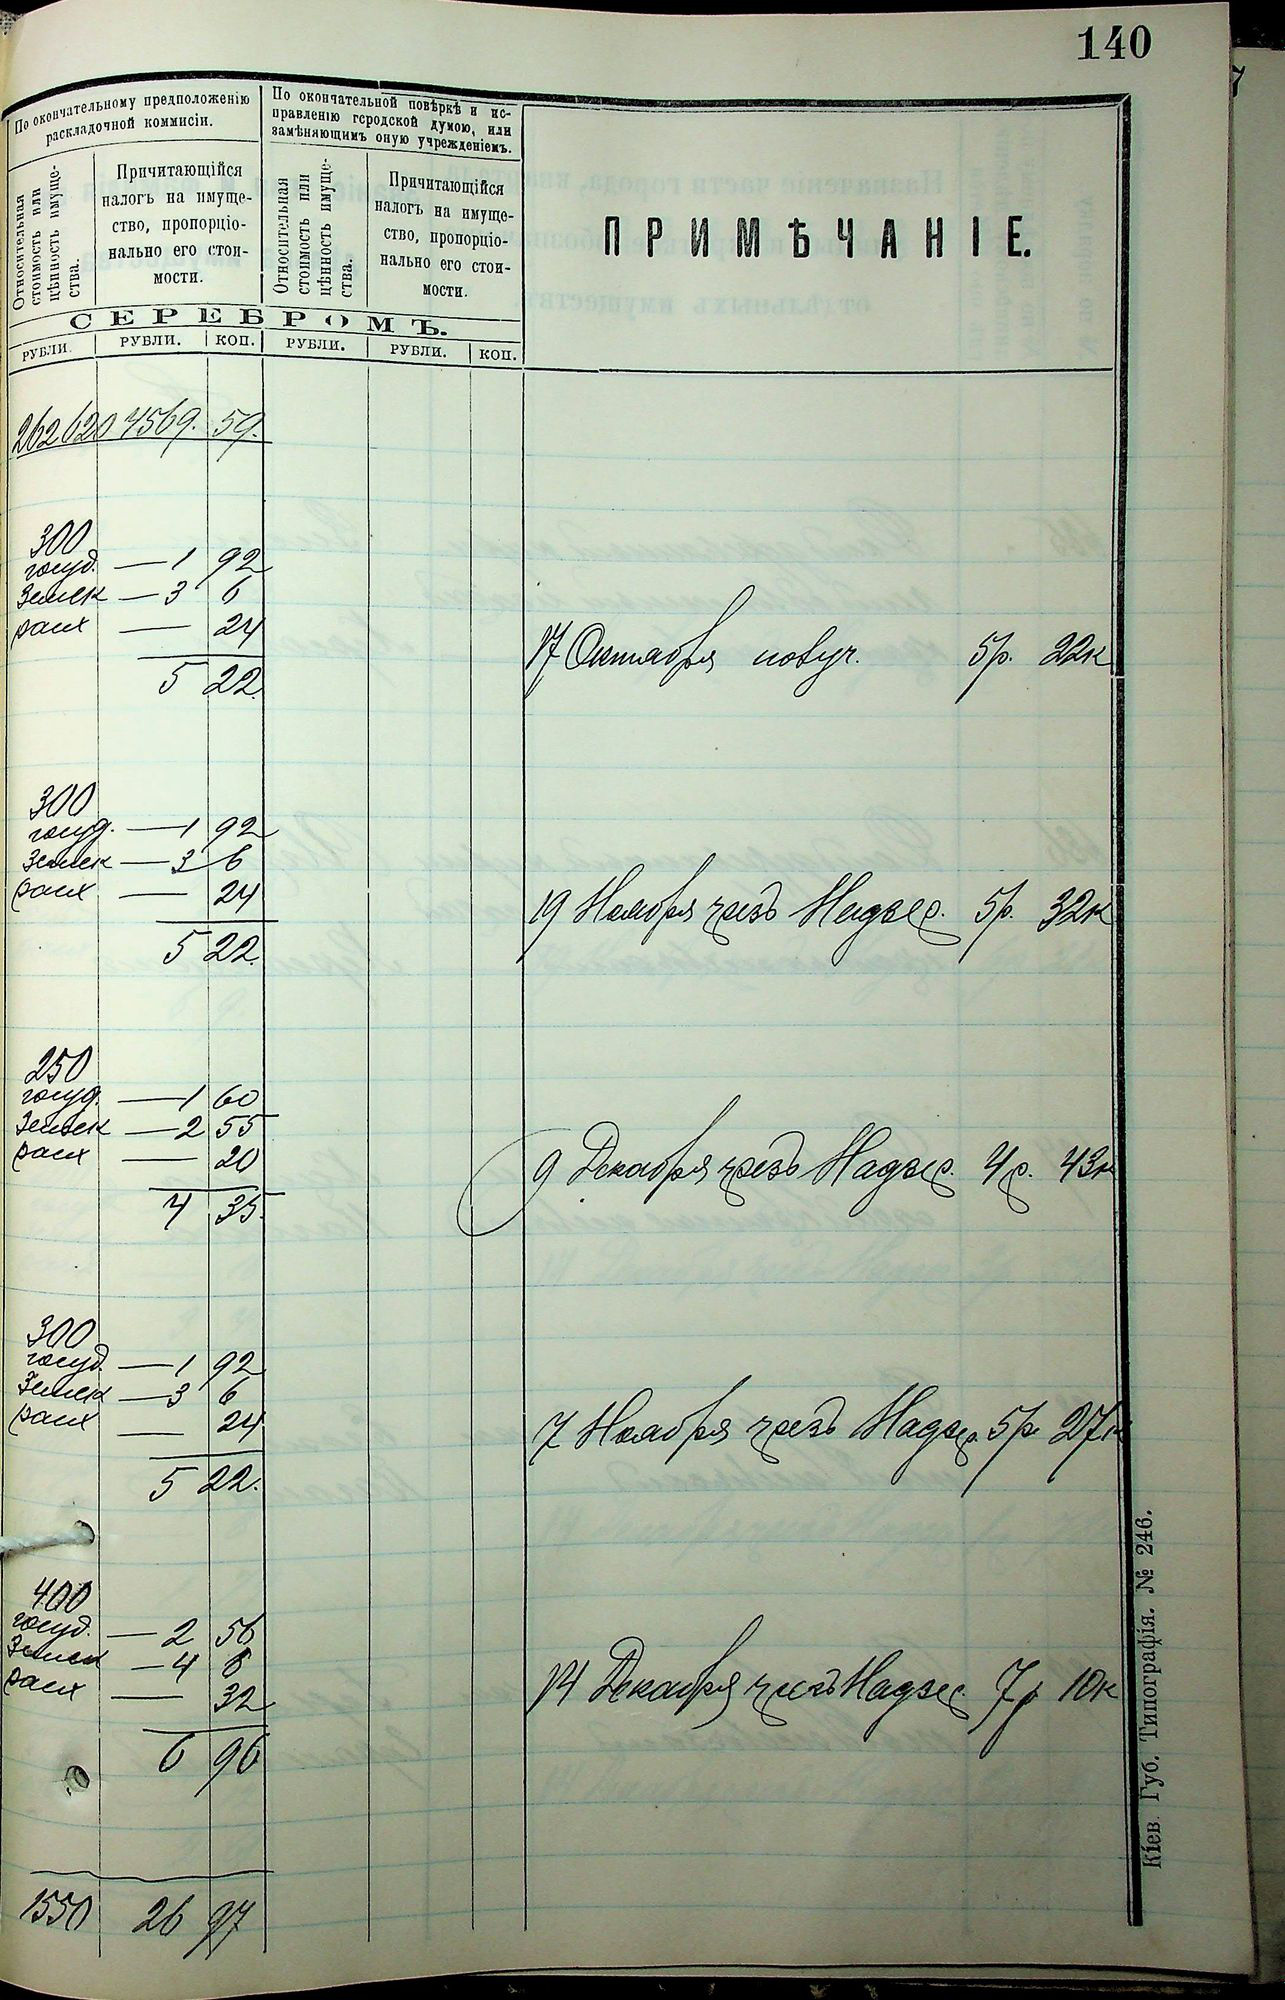 140
По окончательному предположенію
раскладочной коммисіи.
По окончательной повѣркѣ и ис-
правленію городской думою, или
замѣняющимъ оную учрежденіемъ.
Относительная
стоимость или
цѣнность имуще-
ства.
Причитающійся
налогъ на имуще-
ство, пропорціо-
нально его стои-
мости.
Относительная
стоимость или
цѣнность имуще-
ства.
Причитающійся
налогъ на имуще-
ство, пропорціо-
нально его стои-
мости.
ПРИМѢЧАНІЕ.
СЕРЕБРОМЪ.
РУБЛИ. РУБЛИ. КОП. РУБЛИ. РУБЛИ. КОП.
262620 4569. 59.
300
госуд. — 1 92
Земск — 3 6
расх — 24
5 22.
17 Октября получ. 5р. 22к
300
госуд. — 1 92
Земск — 3 6
расх — 24
5 22.
19 Ноября чрезъ Надзер. 5р. 32к
250
госуд. — 1 60
Земск — 2 55
расх — 20
4 35.
9 Декабря чрезъ Надзер. 4р. 43к
300
госуд. — 1 92
Земск — 3 6
расх — 24
5 22.
7 Ноября чрезъ Надзер. 5р 27к
400
госуд. — 2 56
Земск — 4 8
расх — 32
6 96
14 Декабря чрезъ Надзер. 7р 10к
1550 26 97
Кіев. Губ. Типографія. № 246.